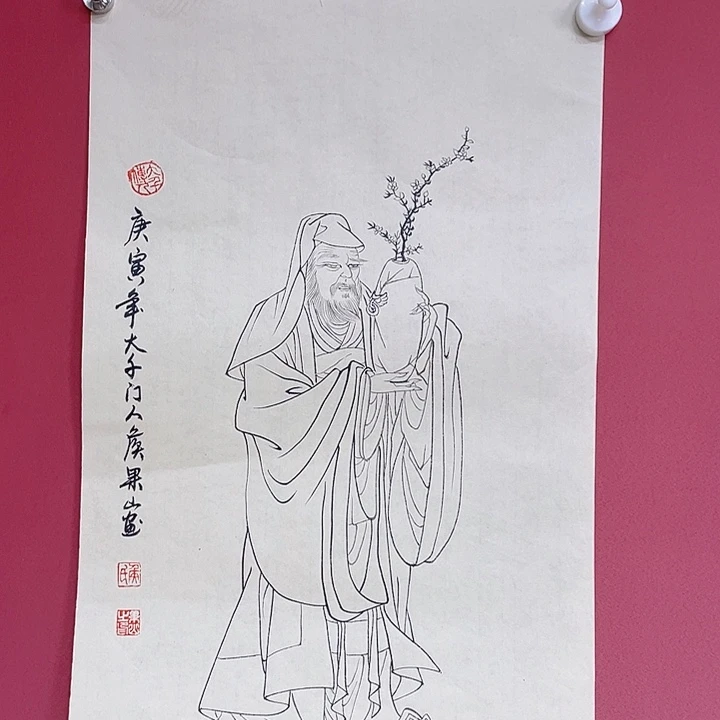 庚寅年大千门人侯果山画
侯氏